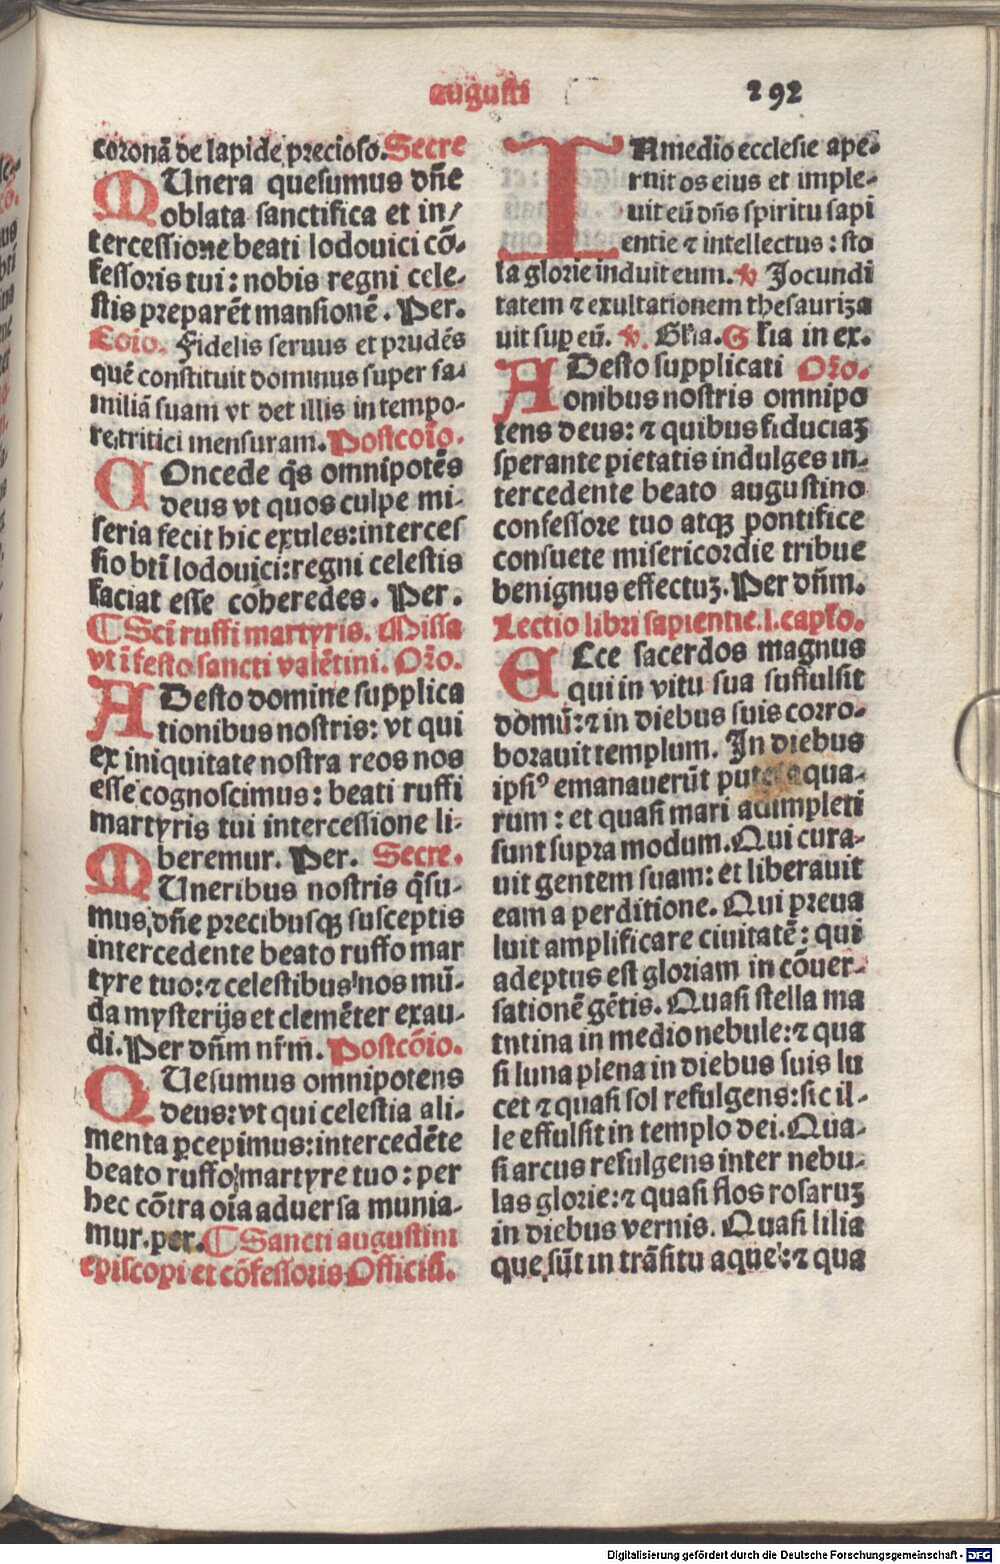 augusti
292
coronā de lapide precioso. Secre
MUnera quesumus dn̄e
oblata sanctifica et in/
tercessione beati lodouici cō-
fessoris tui: nobis regni cele-
stis preparēt mansionē. Per.
Cōio. Fidelis seruus et prudēs
quē constituit dominus super fa-
miliā suam vt det illis in tempo-
re tritici mensuram. Postcōio.
COncede q̄s omnipotēs
deus vt quos culpe mi-
seria fecit hic exules: interces
sio bt̄i lodouici: regni celestis
faciat esse coheredes. Per.
¶ Sct̄i ruffi martyris. Missa
vt ī festo sancti valētini. Or̄o.
ADesto domine supplica
tionibus nostris: vt qui
ex iniquitate nostra reos nos
esse cognoscimus: beati ruffi
martyris tui intercessione li-
beremur. Per. Secre.
MUneribus nostris q̄su-
mus dn̄e precibusqꝫ susceptis
intercedente beato ruffo mar
tyre tuo: ⁊ celestibus nos mū-
da mysterijs et clemēter exau-
di. Per dn̄m nr̄m. Postcōio.
QUesumus omnipotens
deus: vt qui celestia ali-
menta ꝑcepimus: intercedēte
beato ruffo martyre tuo: per
hec cōtra oīa aduersa munia-
mur. per. ¶ Sancti augustini
episcopi et cōfessoris Officiū.
IN medio ecclesie ape-
ruit os eius et imple-
uit eū dn̄s spiritu sapi
entie ⁊ intellectus: sto
la glorie induit eum. ℣ Jocundi
tatem ⁊ exultationem thesauriza
uit suꝑ eū. ℣. Gl'ia. Gl'ia in ex.
ADesto supplicati Or̄o.
onibus nostris omnipo
tens deus: ⁊ quibus fiduciaꝫ
sperante pietatis indulges in-
tercedente beato augustino
confessore tuo atqꝫ pontifice
consuete misericordie tribue
benignus effectuꝫ. Per dn̄m.
Lectio libri sapientie. l. capl'o.
ECce sacerdos magnus
qui in vitu sua suffulsit
domū: ⁊ in diebus suis corro-
borauit templum. In diebus
ipsiꝰ emanauerūt putei aqua-
rum: et quasi mari adimpleti
sunt supra modum. Qui cura-
uit gentem suam: et liberauit
eam a perditione. Qui preua
luit amplificare ciuitatē: qui
adeptus est gloriam in cōuer-
sationē gētis. Quasi stella ma
tutina in medio nebule: ⁊ qua
si luna plena in diebus suis lu
cet ⁊ quasi sol refulgens: sic il-
le effulsit in templo dei. Qua-
si arcus refulgens inter nebu-
las glorie: ⁊ quasi flos rosaruꝫ
in diebus vernis. Quasi lilia
que sūt in trāsitu aque: ⁊ qua
Digitalisierung gefördert durch die Deutsche Forschungsgemeinschaft - DFG